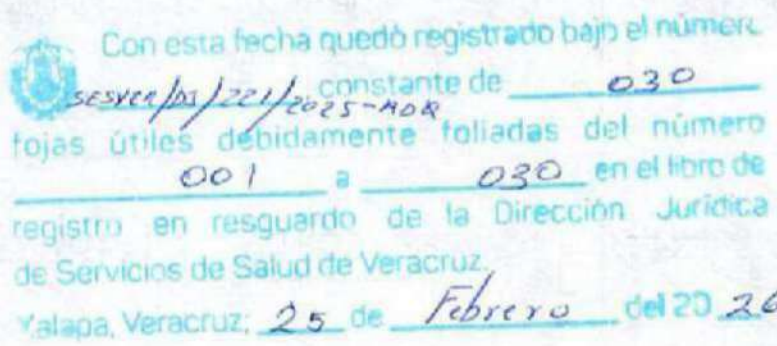 Con esta fecha quedó registrado bajo el númer
SESVER/DJ/221/2025-ADQ constante de 030
fojas útiles debidamente foliadas del número
001 a 030 en el libro de
registro en resguardo de la Dirección Jurídica
de Servicios de Salud de Veracruz.
Xalapa, Veracruz; 25 de Febrero del 20 26